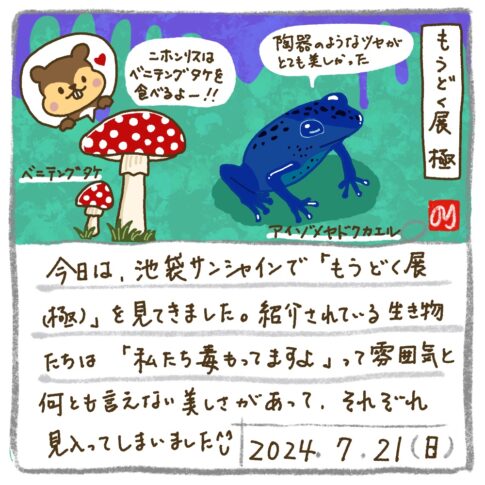 もうどく展 極
ニホンリスは
ベニテングタケを
食べるよー!!
陶器のようなツヤが
とても美しかった
ベニテングタケ
アイゾメヤドクガエル
今日は、池袋サンシャインで「もうどく展
(極)」を見てきました。紹介されている生き物
たちは 「私たち毒もってますよ」って雰囲気と
何とも言えない美しさがあって、それぞれ
見入ってしまいました^^
2024.7.21(日)